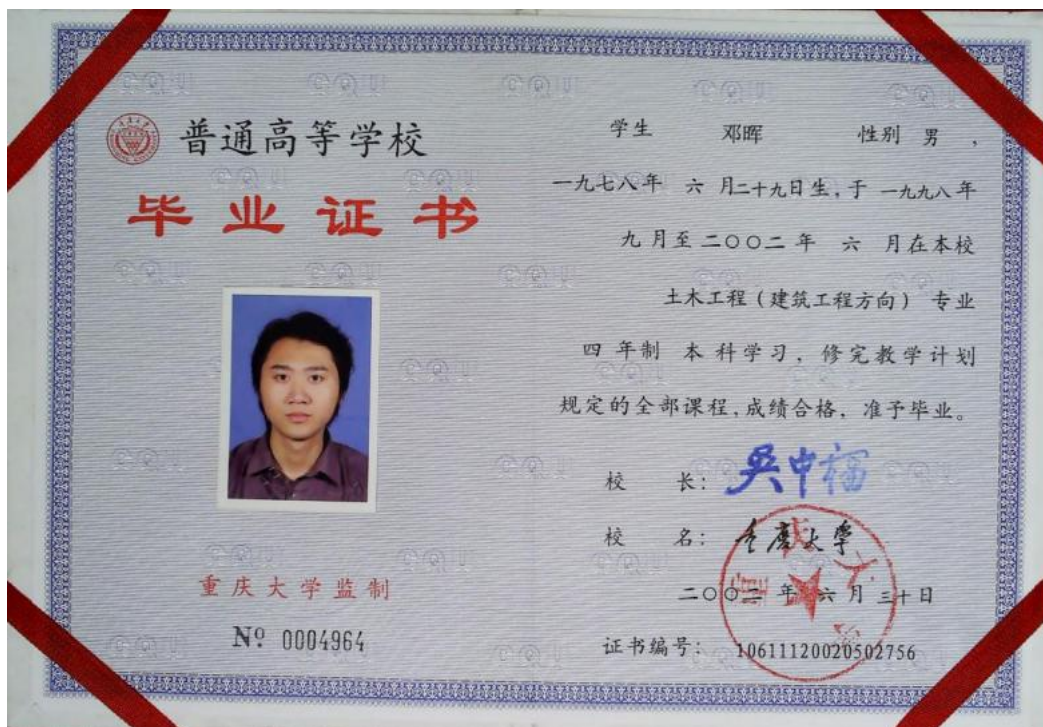 普通高等学校
毕业证书
重庆大学监制
Nº 0004964
学生 邓晖 性别 男 ,
一九七八年 六 月二十九日生,于 一九九八年
九 月至 二〇〇二 年 六 月在本校
土木工程(建筑工程方向) 专业
四 年制 本 科学习, 修完教学计划
规定的全部课程,成绩合格, 准予毕业。
校 长: 吴中福
校 名: 重庆大学
二〇〇二 年 六 月 三十日
证书编号: 106111200205027​56